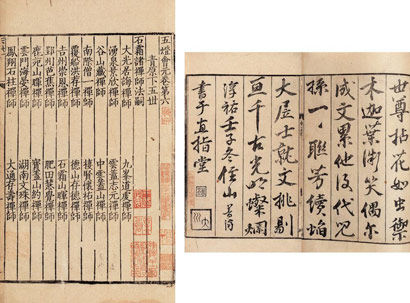 五燈會元卷第六
青原下五世
石霜諸禪師法嗣
大光居誨禪師 九峯道虔禪師
湧泉景欣禪師 雲蓋志元禪師
谷山藏禪師 中雲蓋禪師
南際僧一禪師 棲賢懷祐禪師
覆船洪荐禪師 德山存德禪師
吉州崇恩禪師 石霜山暉禪師
郢州芭蕉禪師 肥田慧覺禪師
鹿苑山暉禪師 寶蓋山約禪師
雲門海晏禪師 湖南文殊禪師
鳳翔石柱禪師 大通存壽禪師
世尊拈花如虫禦
木迦葉微笑偶尔
成文累他後代兒
孫一一聯芳續焰
大居士就文挑剔
亘千古光明燦爛
淳祐壬子冬住山普濟
書于直指堂